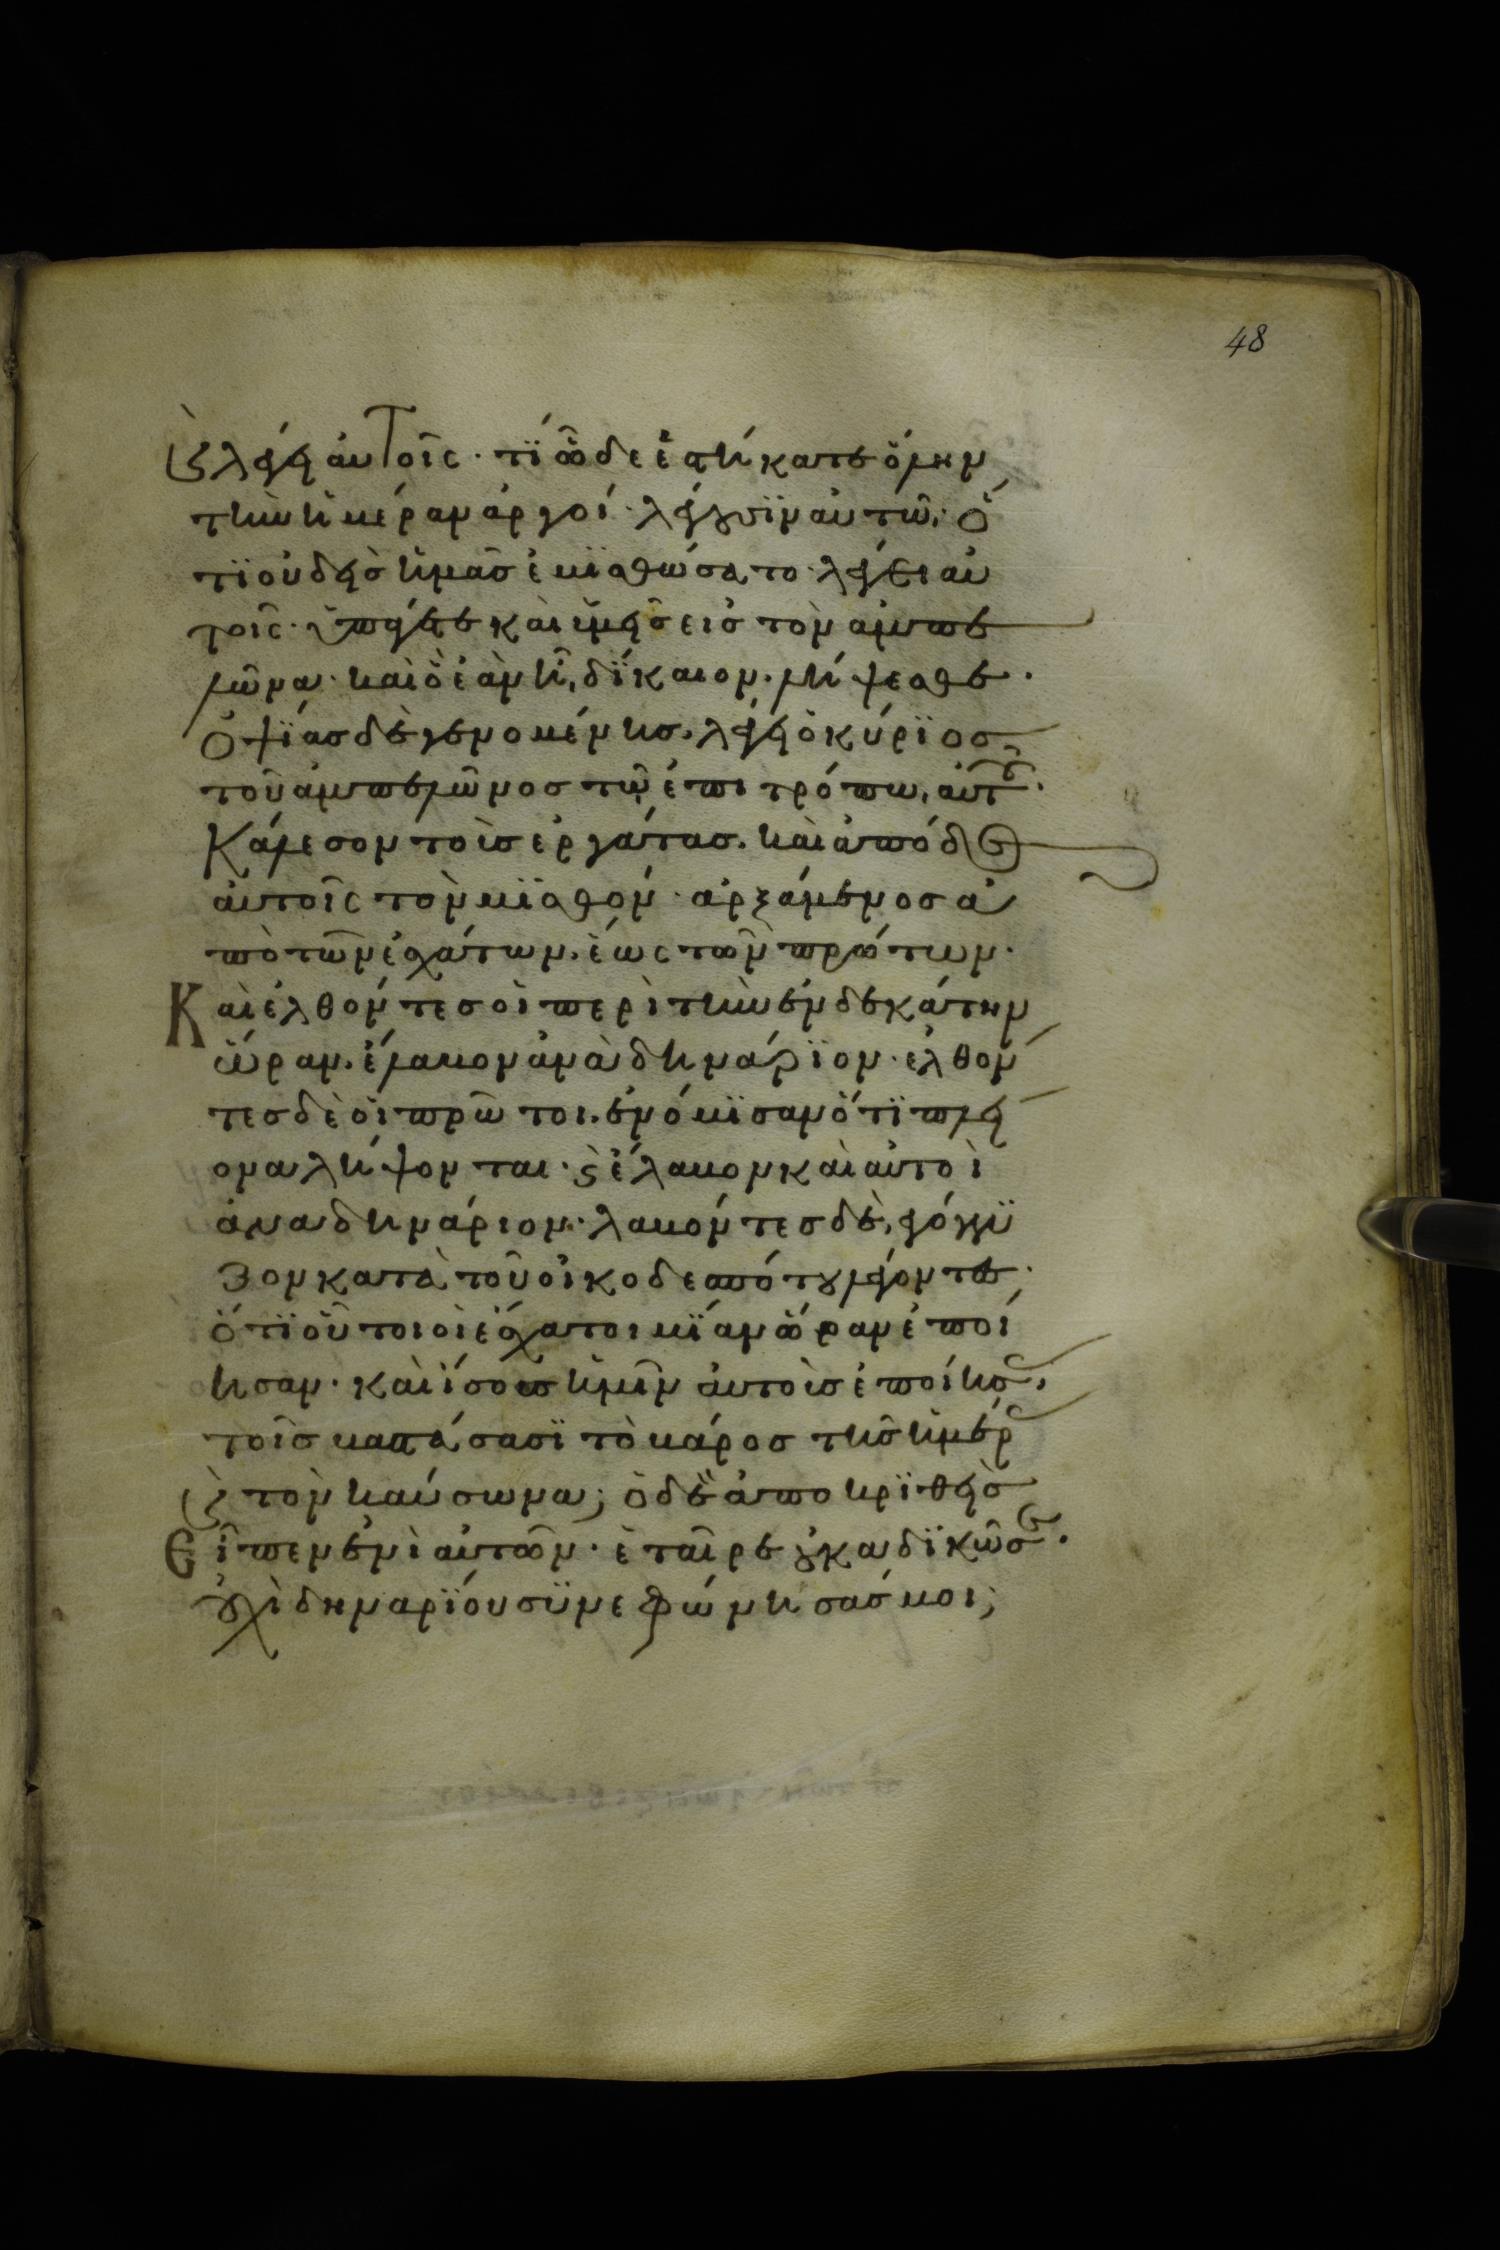 48
ϗ λέγει αὐτοῖς· τί ὧδε ἑστήκατε ὅλην
τὴν ἡμέραν ἀργοί· λέγουσϊν αὐτῶ· ὅ
τϊ οὐδεὶσ ἡμᾶσ ἐμϊσθώσατο· λέγει αὐ
τοῖς· ὑπάγετε καὶ ὑμεῖσ εἰσ τὸν ἀμπε
λῶνα· καὶ ὃ ἐὰν ἦ δΐκαιον. λήψεσθε·
Ὀψΐασ δὲ γενομένησ. λέγει ὁ κύρϊοσ
τοῦ ἀμπελῶνοσ τῶ ἐπιτρόπω αὐτοῦ·
Κάλεσον τοὺσ ἐργάτασ. καὶ ἀπόδοσ
αὐτοῖς τὸν μϊσθόν· ἀρξάμενοσ ἀ
πὸ τῶν ἐσχάτων. ἕως τῶν πρώτων·
Καὶ ἐλθόντεσ οἱ περὶ τὴν ἑνδεκάτην
ὥραν. ἔλαβον ἀνὰ δηνάρϊον· ἐλθόν
τεσ δὲ οἱ πρῶτοι. ἐνόμϊσαν ὅτϊ πλεί
ονα λήψονται· ϗ ἔλαβον καὶ αὐτοὶ
ἀνὰ δηνάριον· λαβόντεσ δὲ, ἐγόγγϋ
ζον κατὰ τοῦ οἰκοδεσπότου λέγοντεσ·
ὅτϊ οὗτοι οἱ ἔσχατοι μΐαν ὥραν ἐποί
ησαν· καὶ ἴσουσ ἡμῖν αὐτοὺσ ἐποίησασ·
τοῖσ βαστάσασϊ τὸ βάροσ τῆσ ἡμέρασ
ϗ τὸν καύσωνα; ὁ δὲ ἀποκρϊθεὶσ
εἶπεν ἑνὶ αὐτῶν· ἑταῖρε οὐκ ἀδϊκῶ σε·
οὐχὶ δηναρΐου σϋνεφώνησάσ μοι;